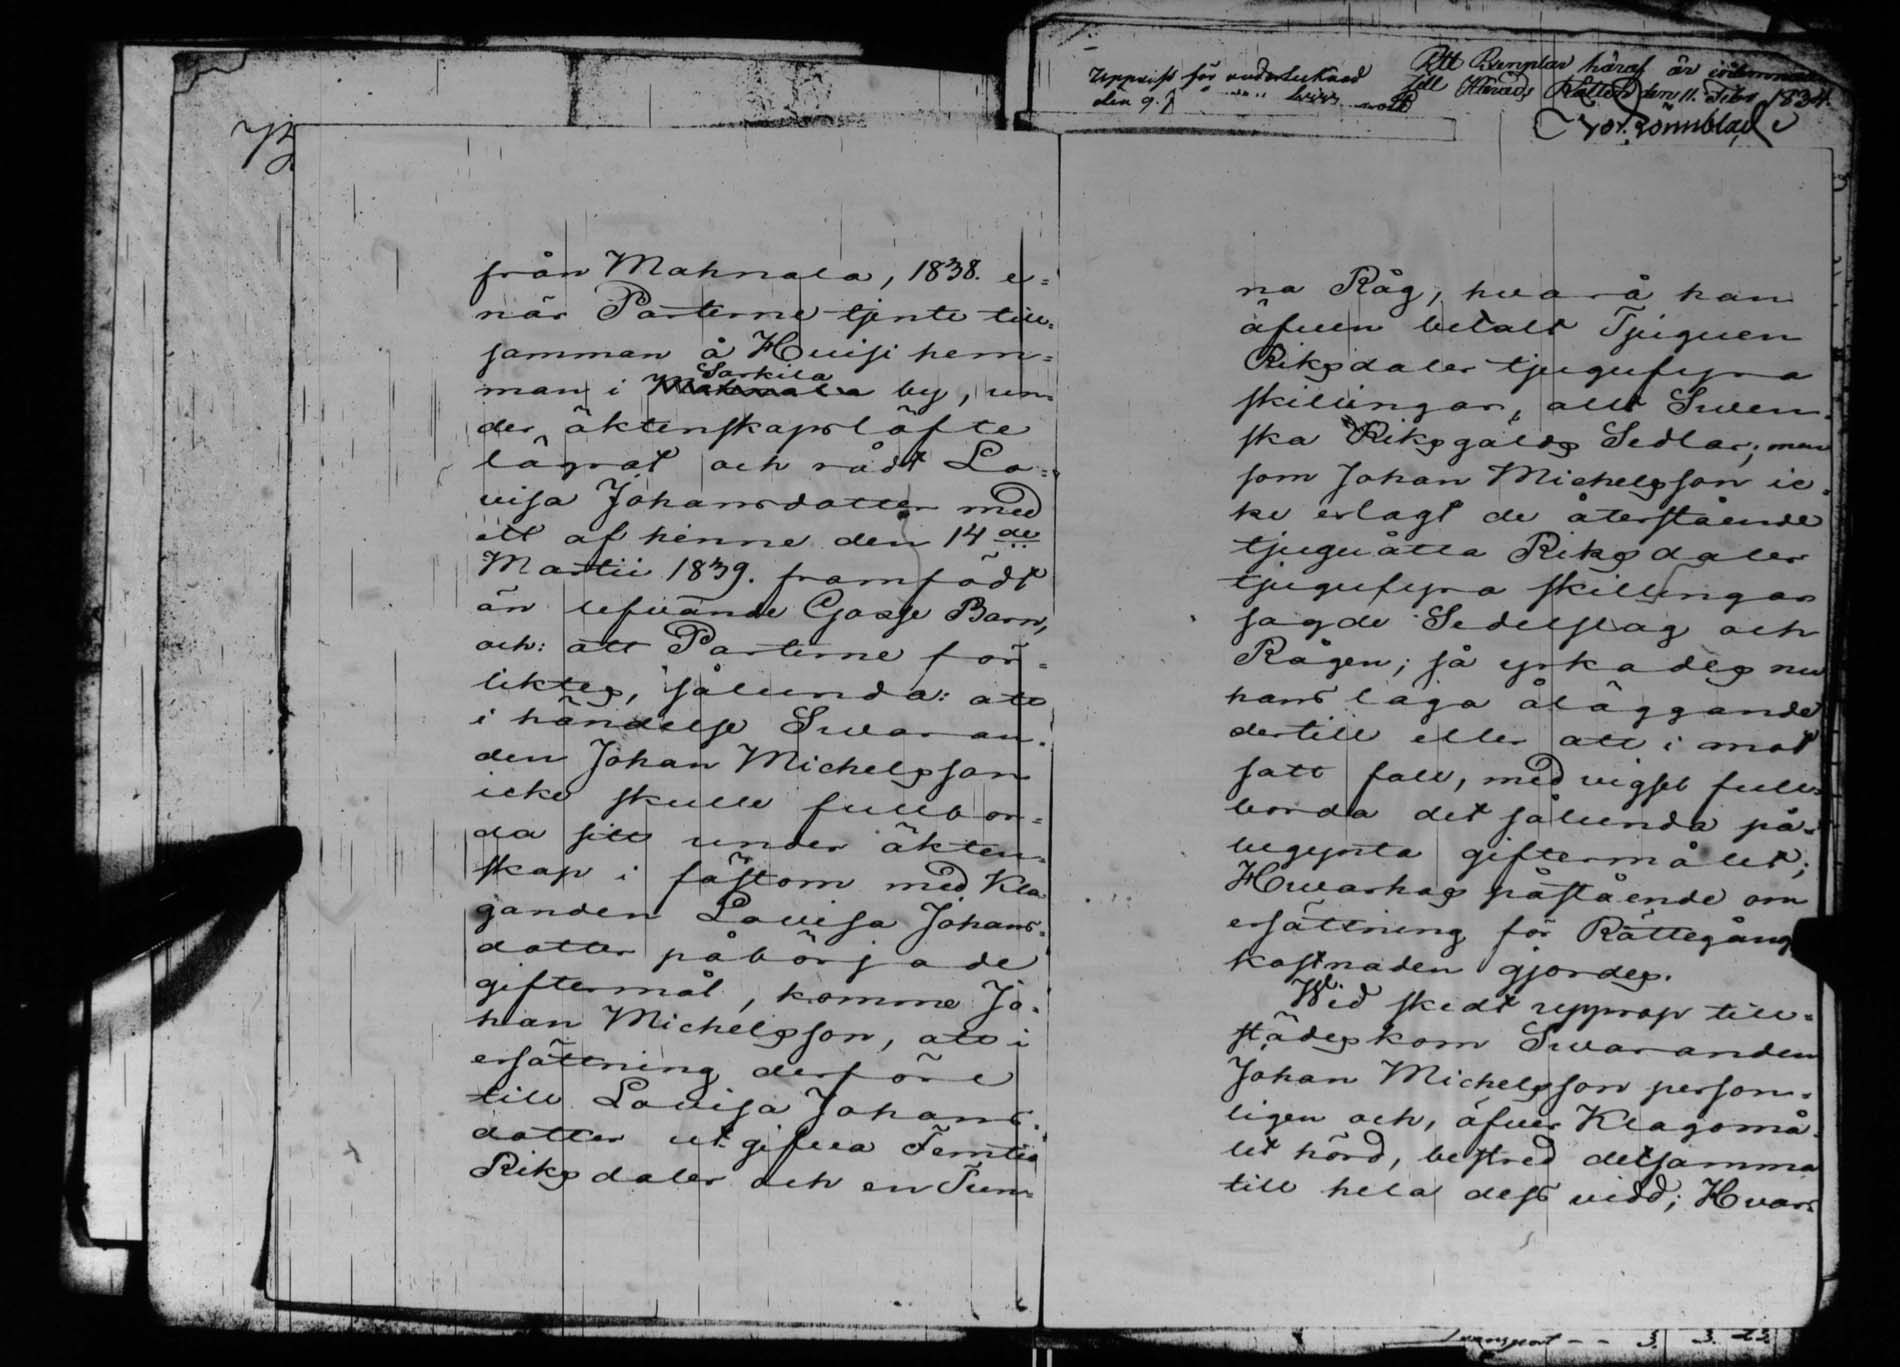 Ett Exemplar häraf är inlemnadt
till Härads Rätten den 11. Febr 1834.
Uppvist för undertecknad
den 9.
75
från Mahnala, 1838. e-
när Parterne tjente till-
samman å Huisi hem-
man i Sarkila by, un-
der äktenskapslöfte
lägrat och rådt Lo-
visa Johansdotter med
ett af henne den 14 de
Martii 1839. framfödt
än lefvande Gosse Barn,
och: att Parterne för-
liktes, sålunda: att
i händelse Svaran-
den Johan Michelsson
icke skulle fullbor-
da sitt under äkten-
skap i fästom med Kla-
ganden Lovisa Johans-
dotter påbörjade
giftermål, komme Jo-
han Michelsson, att i
ersättning derföre
till Lovisa Johans-
dotter utgifva Femtio
Riksdaler och en Tun-
na Råg, hvarå han
äfven betalt Tjuguen
Riksdaler tjugufyra
skillingar, allt Sven-
ska Riksgälds Sedlar; men
som Johan Michelsson ic-
ke erlagt de återstående
tjuguåtta Riksdaler
tjugufyra skillingar
sagde Sedelslag och
Rågen; så yrkades nu
hans laga åläggande
dertill eller att i mot
satt fall, med vigsel full-
borda det sålunda på-
begynta giftermålet;
Hvarhos påstående om
ersättning för Rättegång
kostnaden gjordes.
Wid skedt upprop till-
städes kom Svaranden
Johan Michelsson person-
ligen och, äfver Klagomå-
let hörd, bestred detsamma
till hela dess vidd; Hvar-
Transport - - 3. 3. 23.